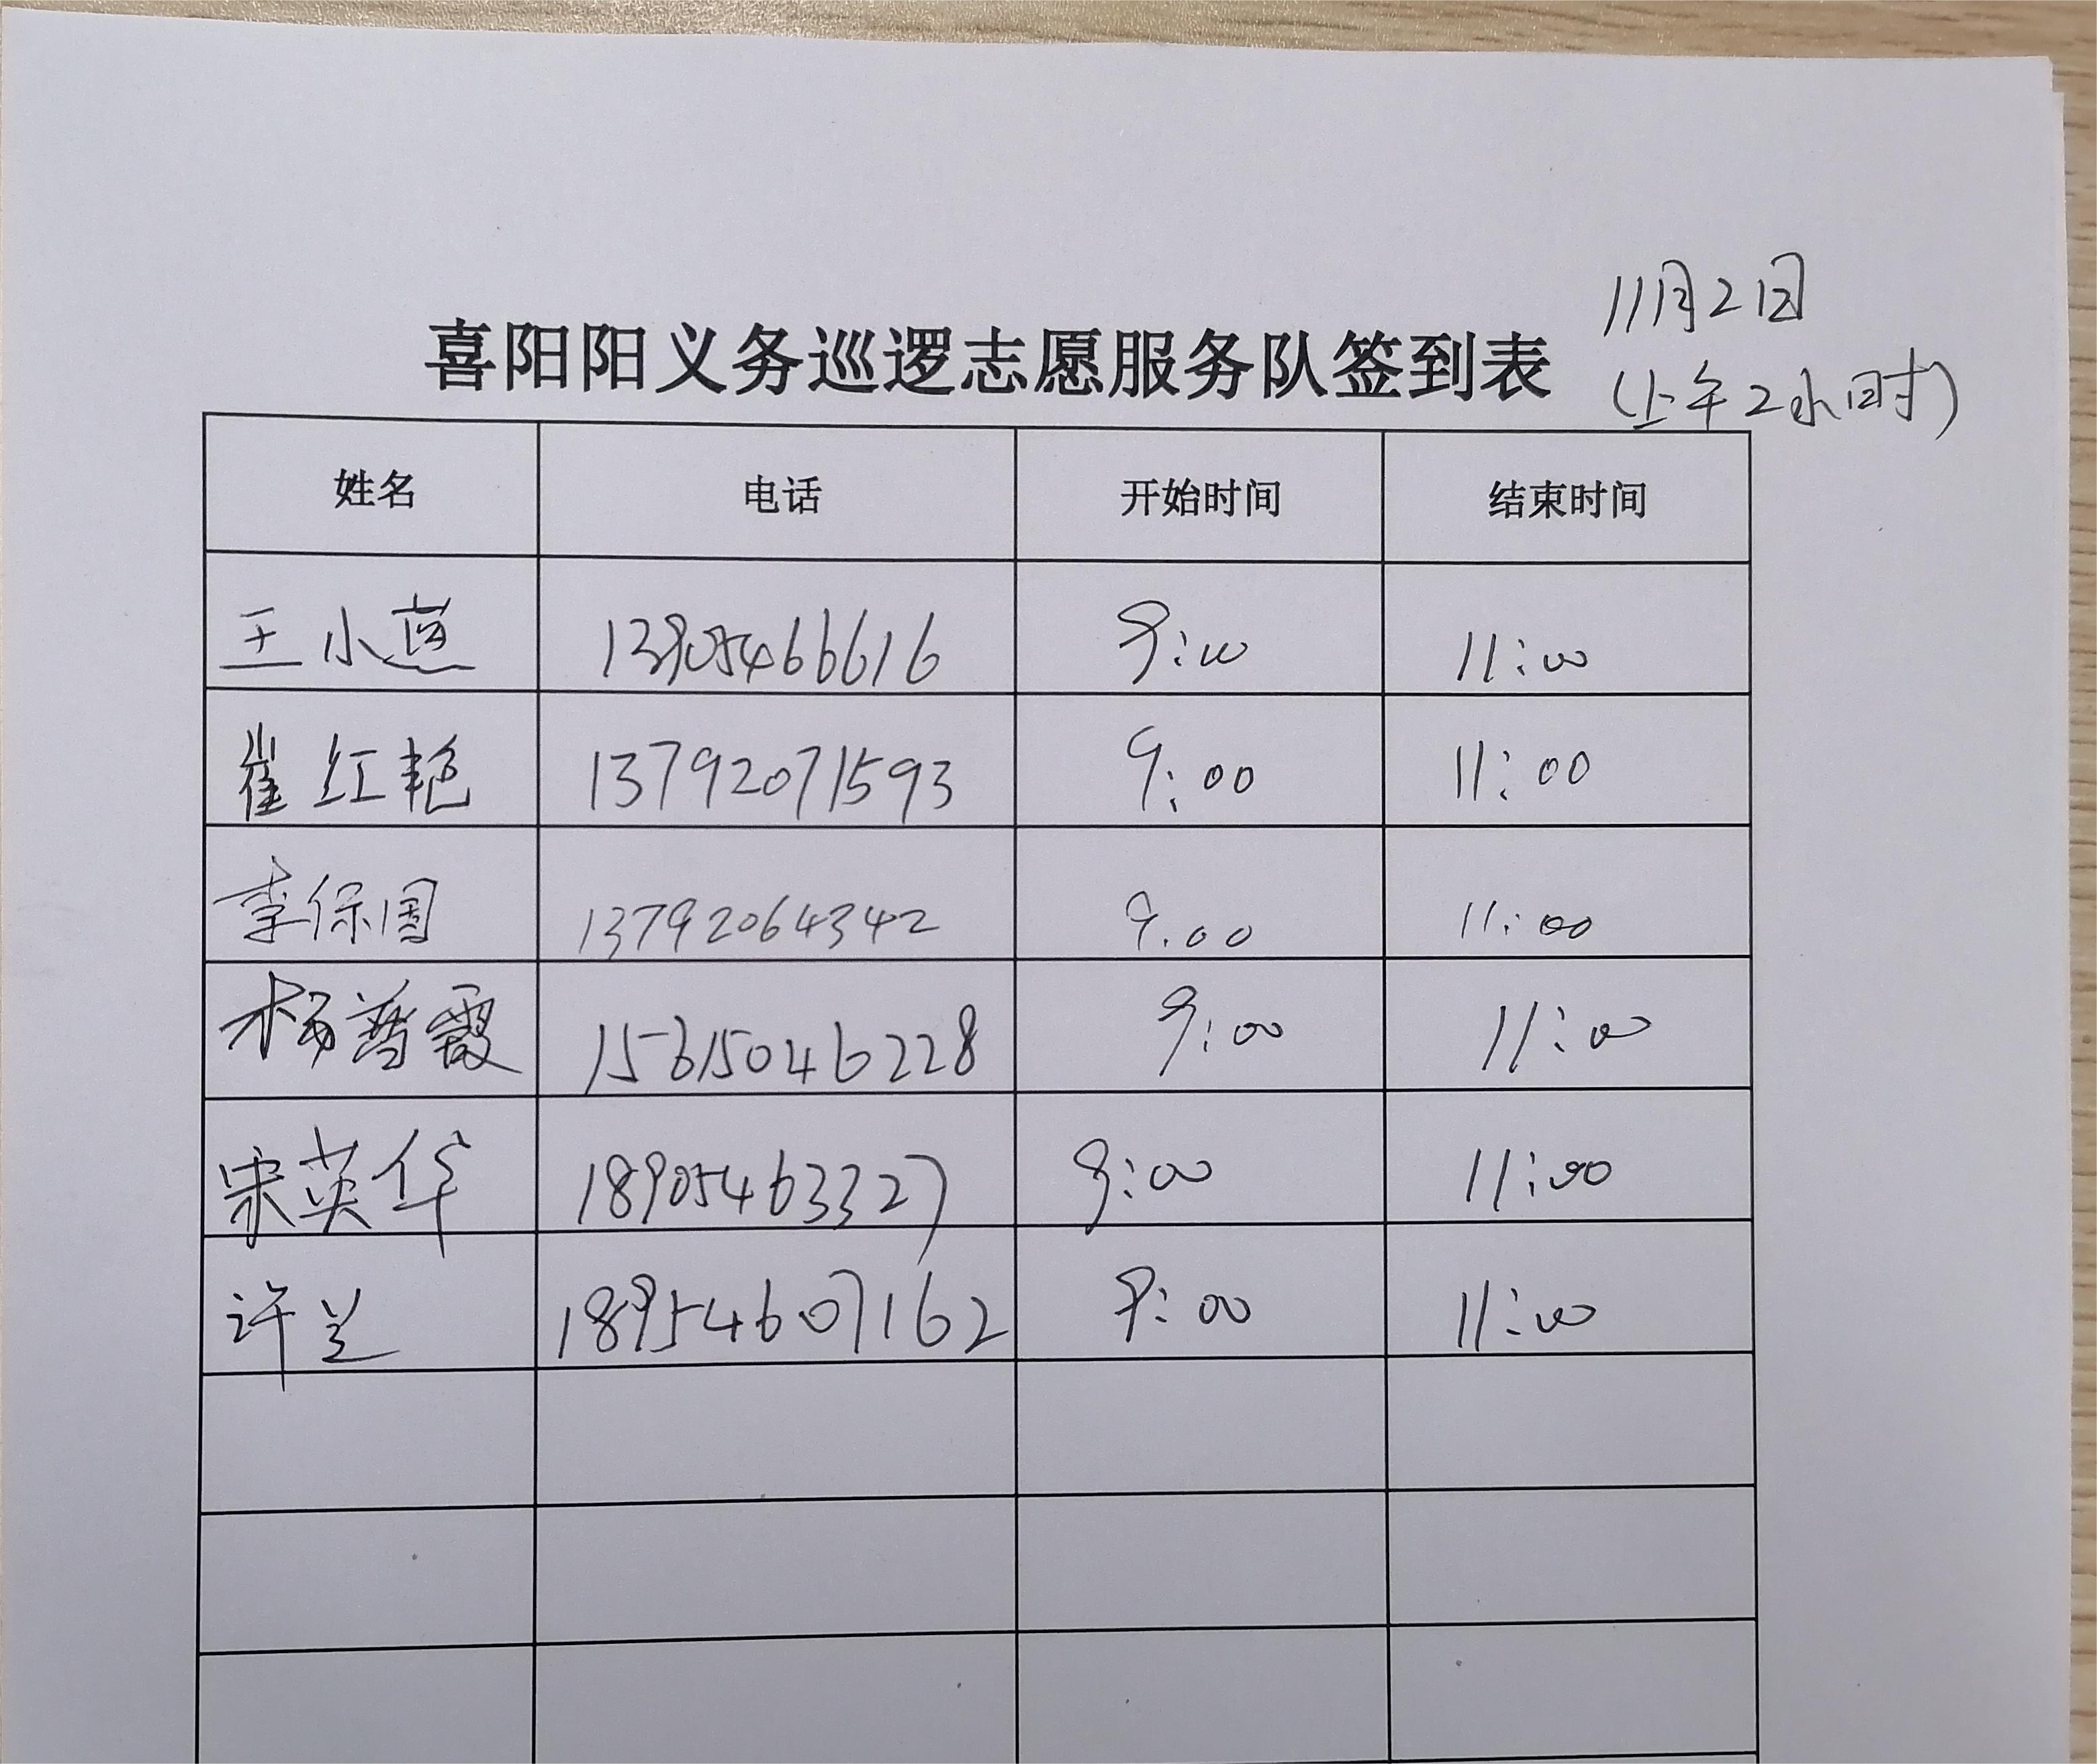 11月2日
喜阳阳义务巡逻志愿服务队签到表
(上午2小时)
姓名 电话 开始时间 结束时间
王小 13905466616 9:00 11:00
崔红艳 13792071593 9:00 11:00
李保国 13792064342 9.00 11:00
杨普霞 15615046228 9:00 11:00
宋英华 18905463327 9:00 11:00
许兰 18954607162 9:00 11:00